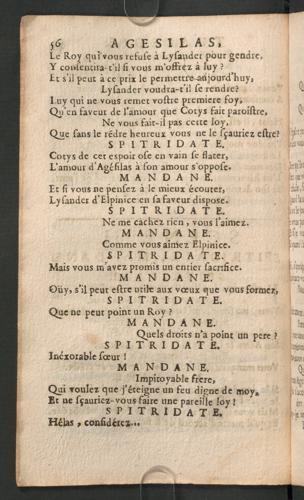 56 AGESILAS,
Le Roy qui vous refuse à Lysander pour gendre,
Y consentira-t'il si vous m'offrez à luy ?
Et s'il peut à ce prix le permettre aujourd'huy,
Lysander voudra-t'il se rendre?
Luy qui ne vous remet vostre premiere foy,
Qu'en faveur de l'amour que Cotys fait paroistre,
Ne vous fait-il pas cette loy,
Que sans le rēdre heureux vous ne le sçauriez estre?
SPITRIDATE.
Cotys de cet espoir ose en vain se flater,
L'amour d'Agésilas à son amour s'oppose.
MANDANE.
Et si vous ne pensez à le mieux écouter,
Lysander d'Elpinice en sa faveur dispose.
SPITRIDATE.
Ne me cachez rien, vous l'aimez.
MANDANE.
Comme vous aimez Elpinice.
SPITRIDATE.
Mais vous m'avez promis un entier sacrifice.
MANDANE.
Oüy, s'il peut estre utile aux vœux que vous formez,
SPITRIDATE.
Que ne peut point un Roy ?
MANDANE.
Quels droits n'a point un pere ?
SPITRIDATE.
Inéxorable sœur !
MANDANE.
Impitoyable frere,
Qui voulez que j'éteigne un feu digne de moy,
Et ne sçauriez-vous faire une pareille loy !
SPITRIDATE.
Hélas, considérez...